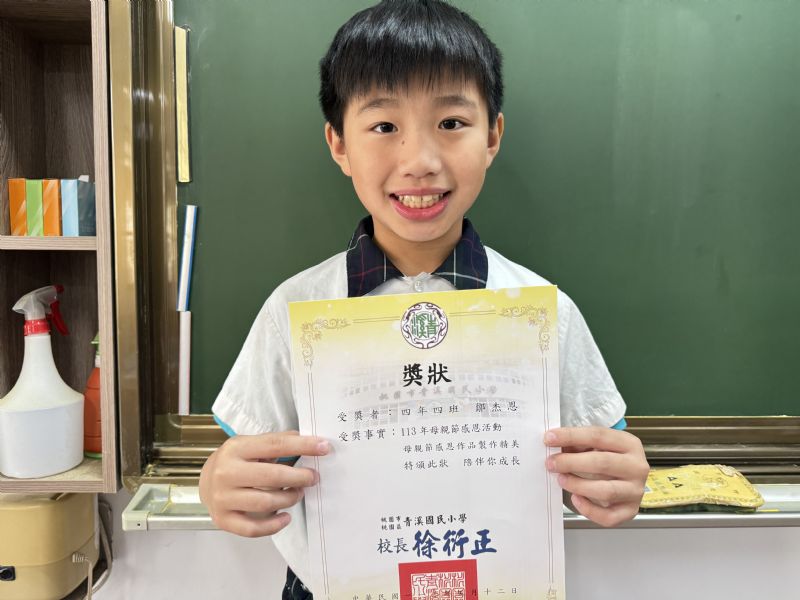 青溪
獎狀
桃園市青溪國民小學
受獎者：四年四班 鄒杰恩
受獎事實：113年母親節感恩活動
母親節感恩作品製作精美
特頒此狀 陪伴你成長
桃園市
桃園區
青溪國民小學
校長 徐衍正
中華民國
月十二日